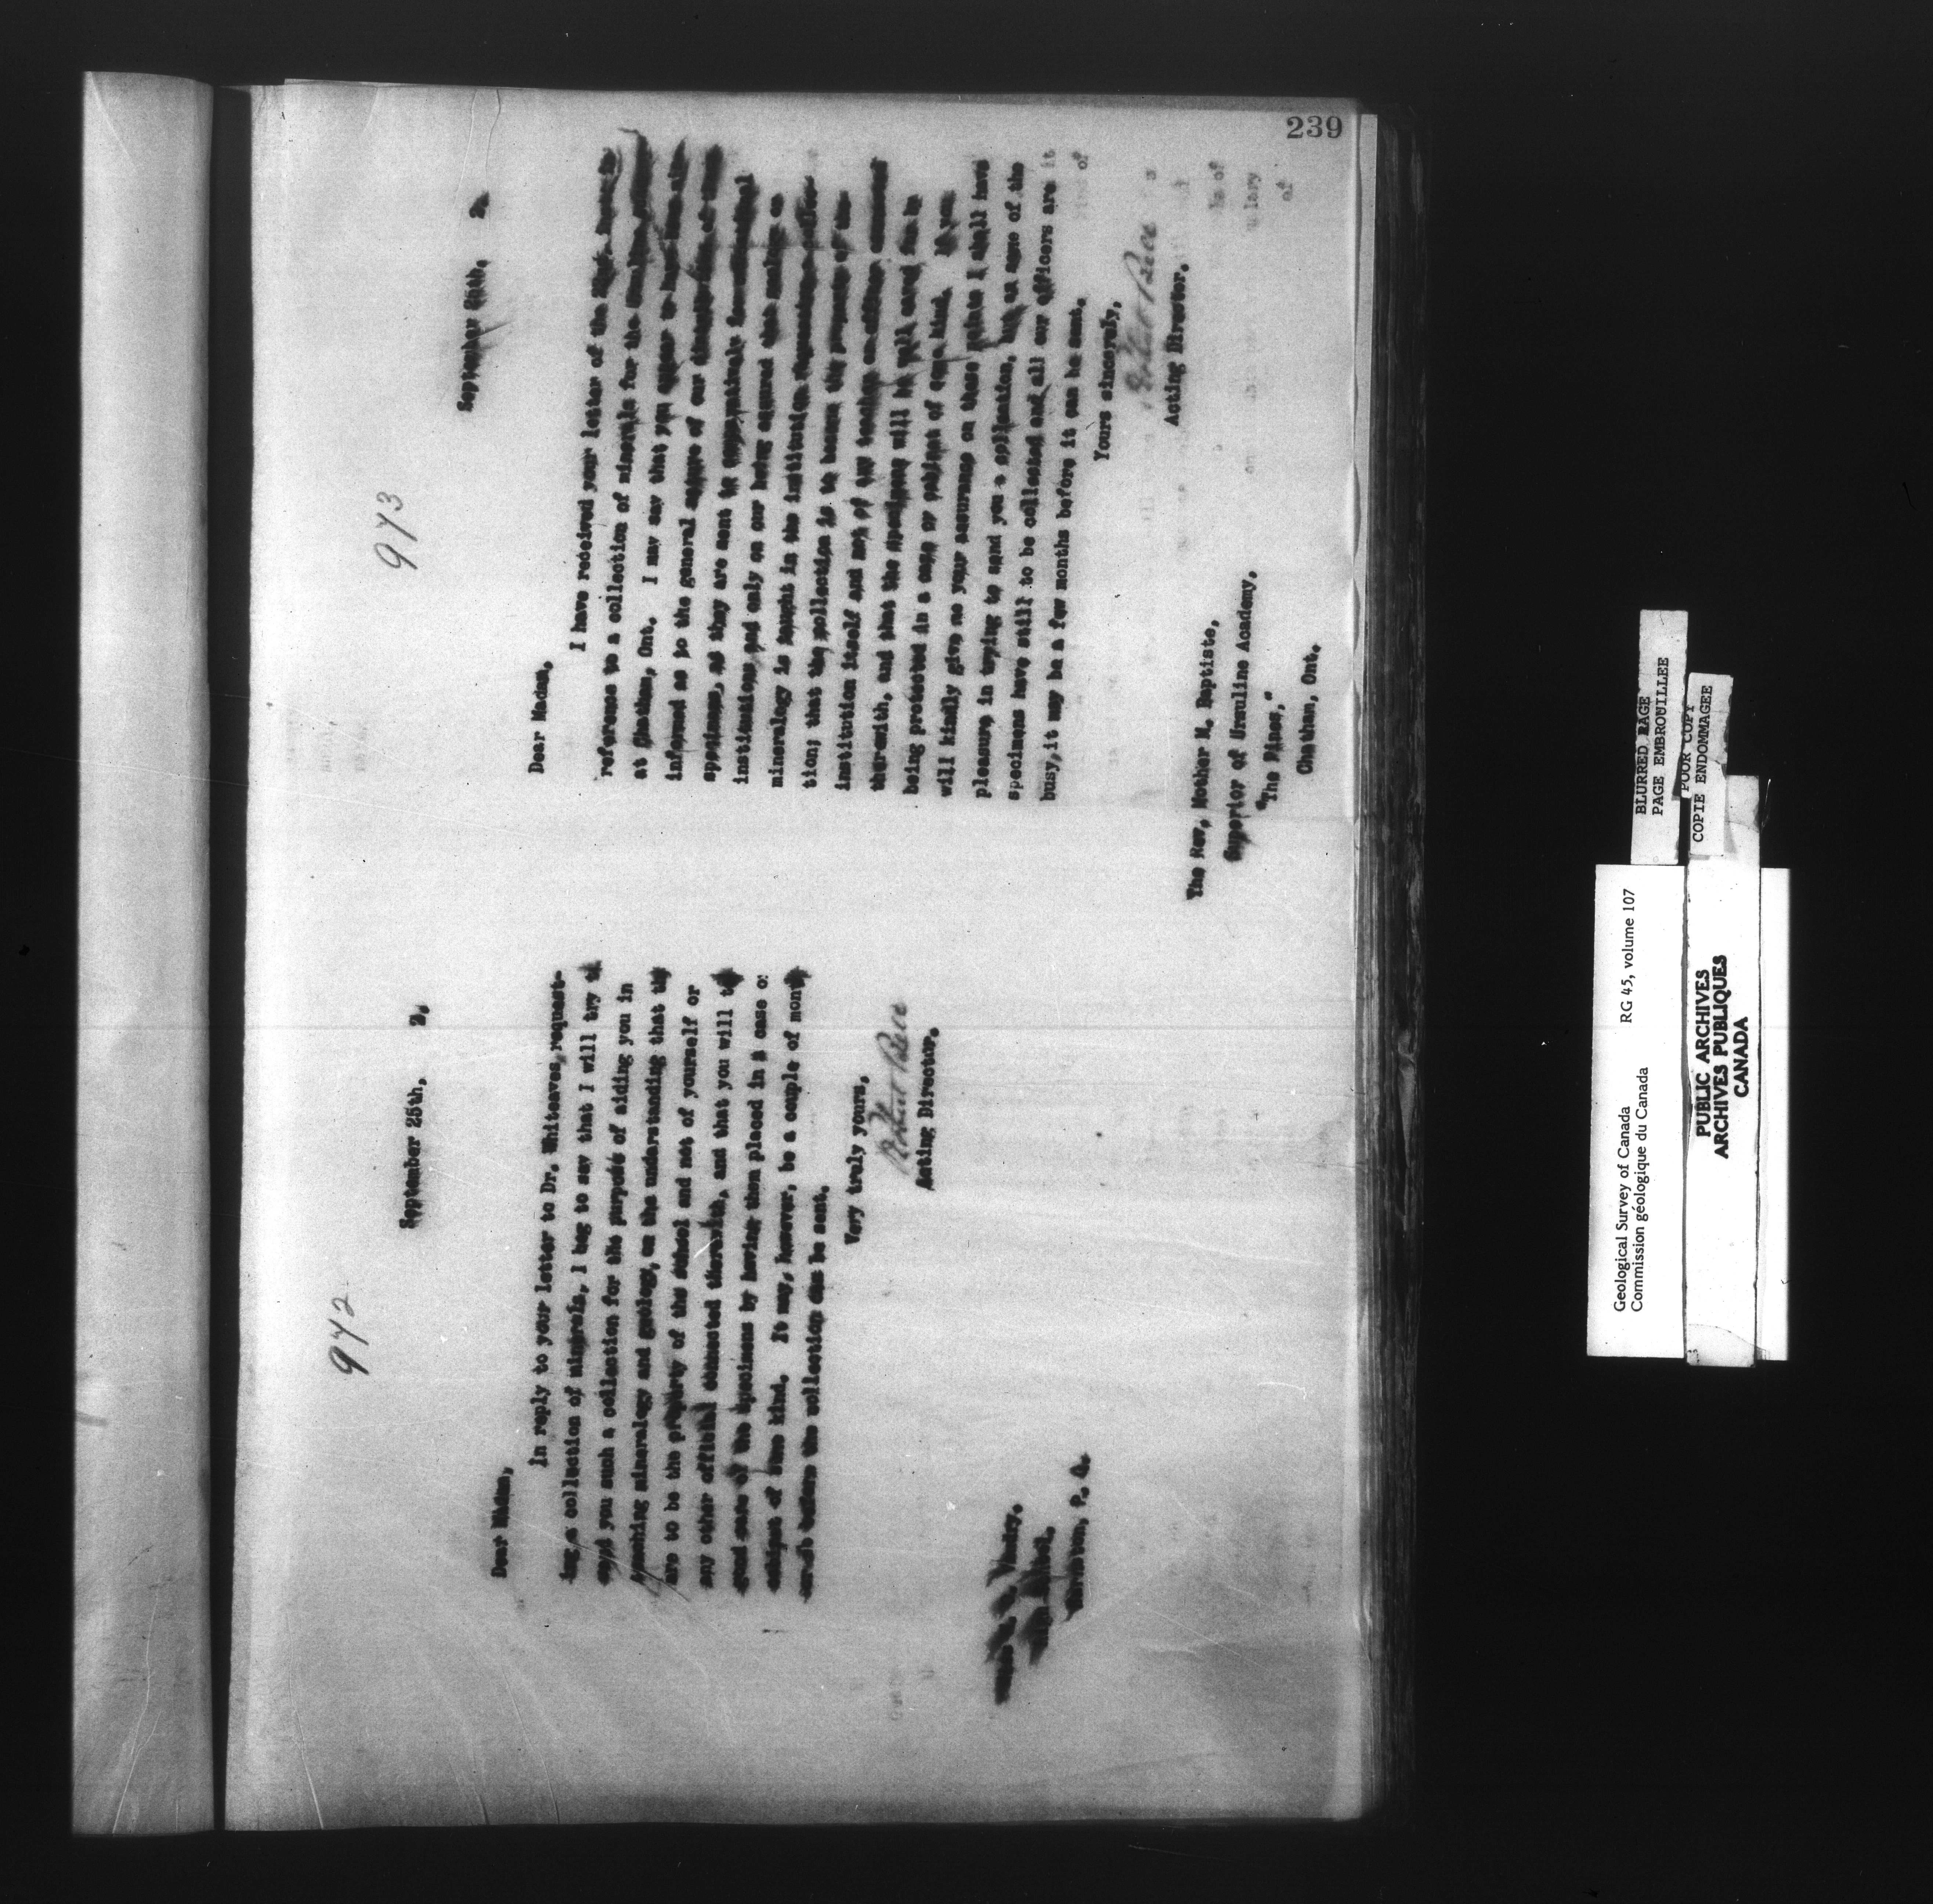 239
942
September 25th, 2,
Dear Madam,
In reply to your letter to Dr. Whiteaves, request-
ing a collection of minerals, I beg to say that I will try
send you such a collection for the purpose of aiding you in
teaching mineralogy and geology, on the understanding that they
are to be the property of the school and not of yourself or
any other official connected therewith, and that you will take
good care of the specimens by having them placed in a case or
cabinet of some kind. It may, however, be a couple of months
before the collection can be sent.
Very truly yours,
Robert Bell
Acting Director.
P. Q.
943
September 2,
Dear Madam,
I have received your letter of the
reference to a collection of minerals for the
at Chatham, Ont. I may say that you appear to have been
informed as to the general nature of our
specimens, as they are sent
institutions and only on our being assured that
mineralogy is taught in the institution
tion; that the collection is to become the property of the
institution itself and not of any teacher or officer connected
therewith, and that the specimens will be well cared for by
being protected in a case or cabinet of some kind. If you
will kindly give me your assurance on these points I shall have
pleasure in trying to send you a collection, but as some of the
specimens have still to be collected and all our officers are
busy, it may be a few months before it can be sent.
Yours sincerely,
Robert Bell
Acting Director.
The Rev. Mother M. Baptiste,
Superior of Ursuline Academy,
"The Pines,"
Chatham, Ont.
BLURRED PAGE
PAGE EMBROUILLEE
POOR COPY
COPIE ENDOMMAGEE
Geological Survey of Canada RG 45, volume 107
Commission géologique du Canada
PUBLIC ARCHIVES
ARCHIVES PUBLIQUES
CANADA